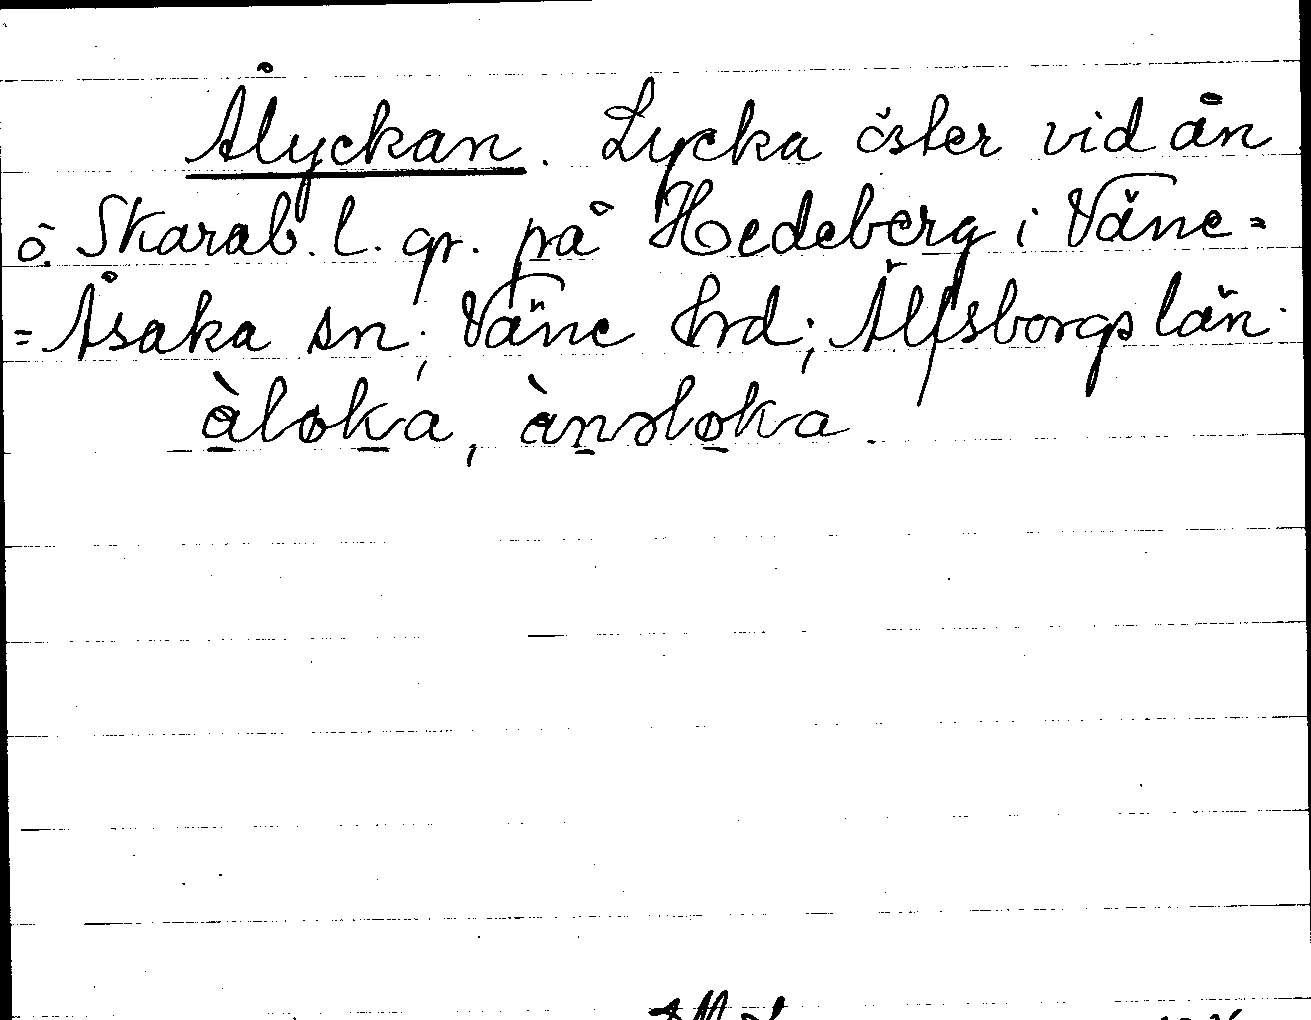 Ålyckan. Lycka öster vid ån
o. Skarab. l. gr. på Hedeberg i Väne=
=Åsaka sn; Väne hrd; Älfsborgs län.
àloka, ànsloka.